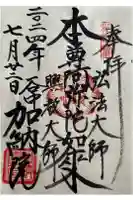 奉拝
弘法大師
本尊阿弥陀如来
興教大師
二〇二四年
七月廿三日
加納院